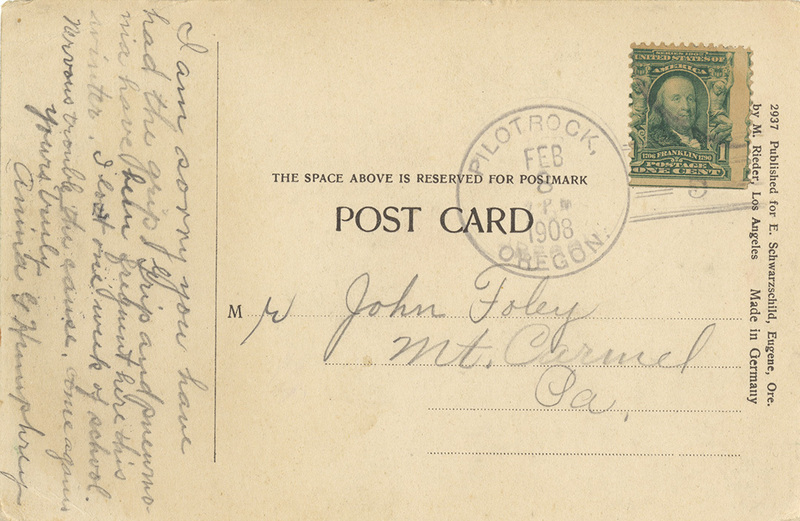 I am sorry you have
had the grip. Grip and pneumo-
nia have been frequent here this
winter. I lost one week of school.
Nervous trouble the cause. Come again
Yours truly
Anna G Humphrey
SERIES 1902
UNITED STATES OF
AMERICA
1706 FRANKLIN 1790
1
POSTAGE
ONE CENT
PILOT ROCK,
FEB
8
PM
1908
OREGON.
THE SPACE ABOVE IS RESERVED FOR POSTMARK
POST CARD
Mr John Foley
Mt. Carmel
Pa.
2937 Published for E. Schwarzschild, Eugene, Ore.
by M. Rieder, Los Angeles Made in Germany